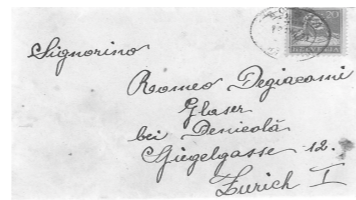 Signorino
Romeo Degiacomi
Glaser
bei Denicolà
Giegelgasse 12.
Zurich I
HELVETIA